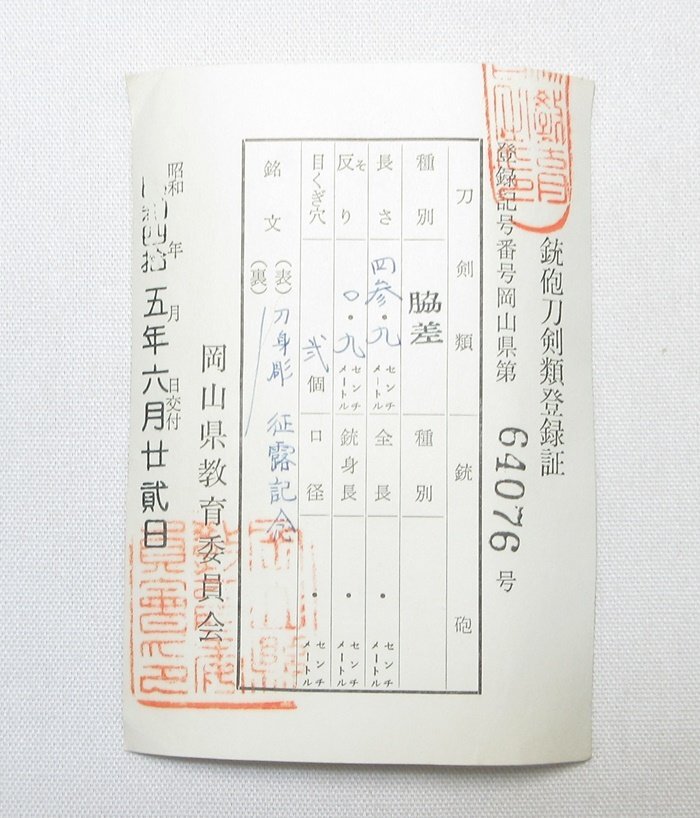 銃砲刀剣類登録証
登録記号番号岡山県第 64076 号
刀剣類 銃砲
種別 脇差 種別
長さ 四参.九 センチメートル 全長 . センチメートル
反り そ 〇.九 センチメートル 銃身長 . センチメートル
目くぎ穴 弐個 口径 . センチメートル
銘文 (表) 刀身彫 征露記念
(裏)
岡山県教育委員会
昭和 年 月 日交付
四拾五年六月廿貳日